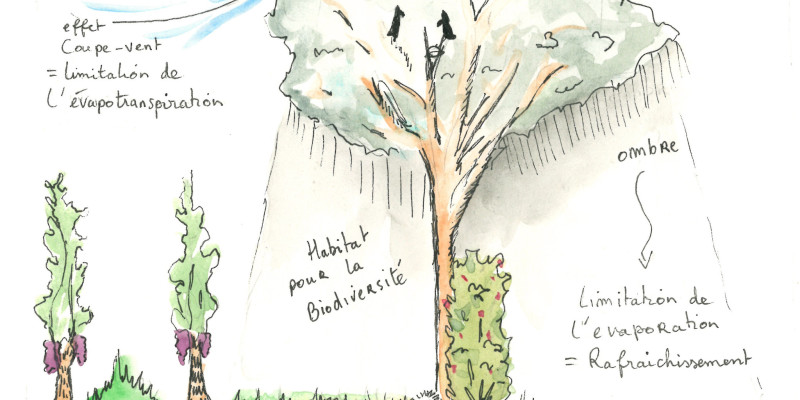 effet
Coupe-vent
= limitation de
l'évapotranspiration
Habitat
pour la
Biodiversité
ombre
Limitation de
l'evaporation
= Rafraichissement